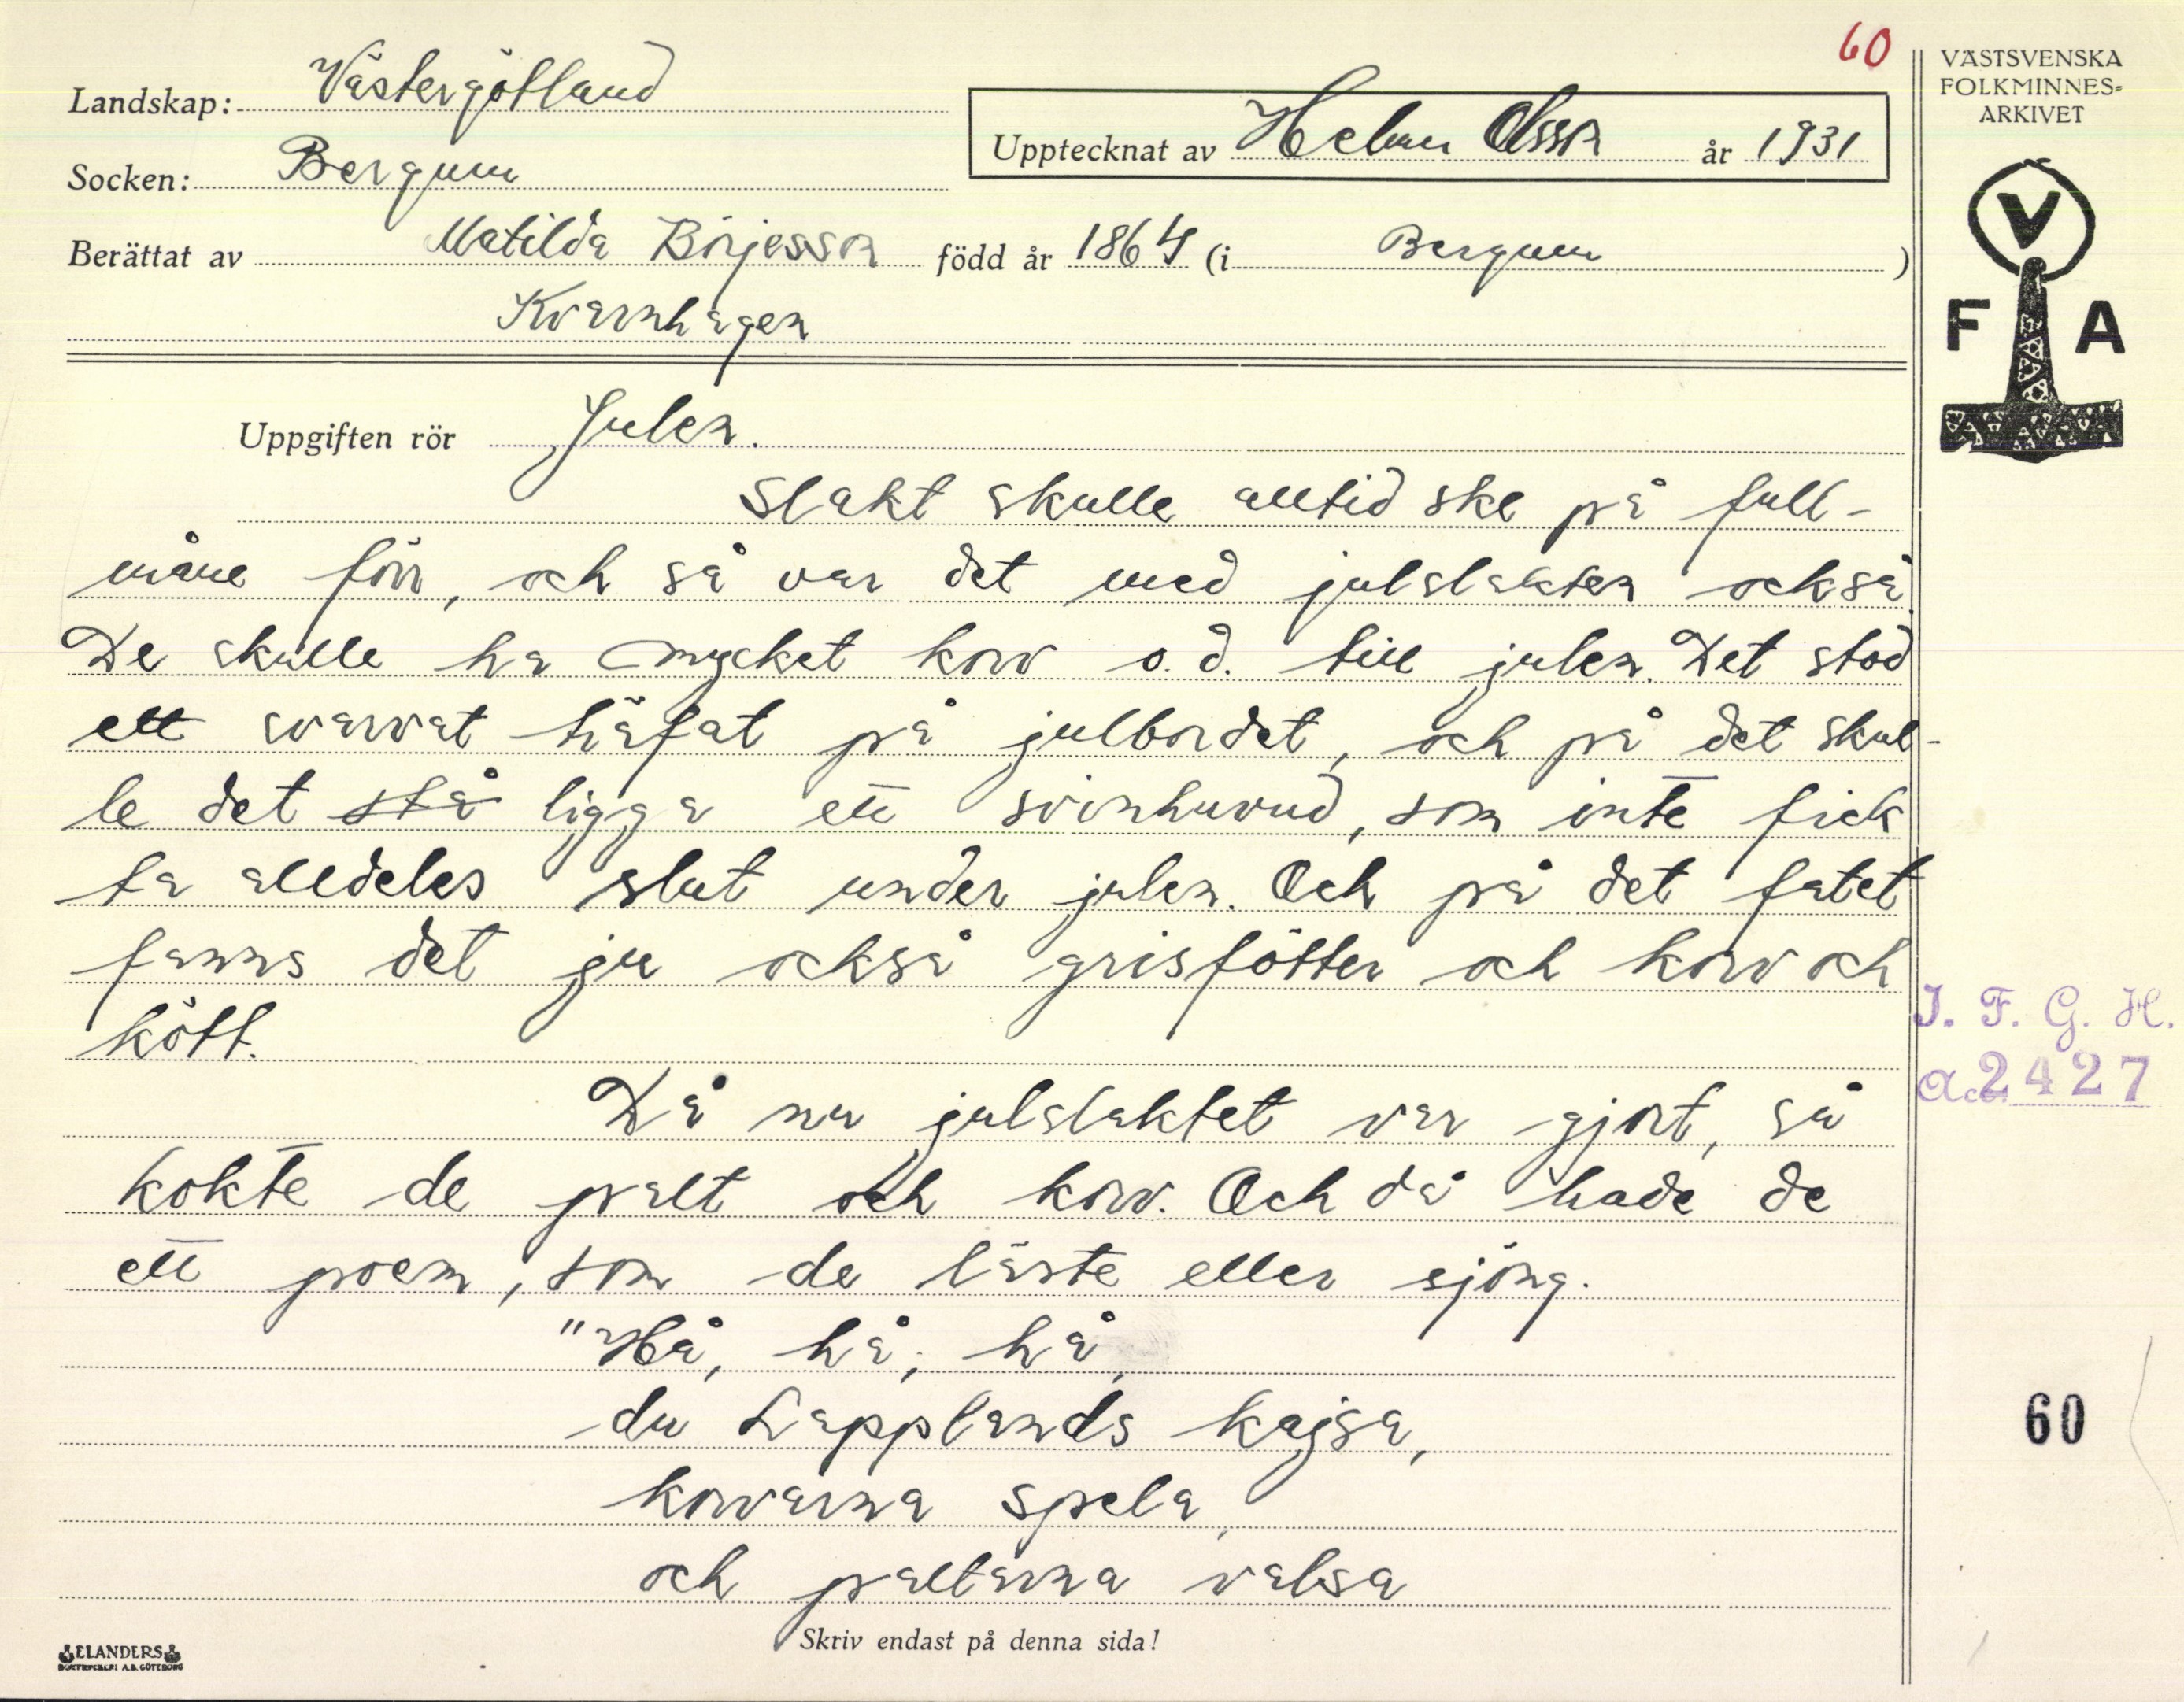 60
VÄSTSVENSKA
FOLKMINNES-
ARKIVET
Landskap: Västergötland
Upptecknat av Helmer Olsson år 1931
Socken: Bergum
Berättat av Matilda Börjesson född år 1864 (i Bergum)
Kvarnhagen
V
F A
Uppgiften rör Julen.
Slakt skulle alltid ske på full-
måne förr, och så var det med julslakten också.
De skulle ha mycket korv o.d. till julen. Det stod
ett svarvat träfat på julbordet, och på det skul-
le det stå ligga ett svinhuvud, som inte fick
ta alldeles slut under julen. Och på det fatet
fanns det ju också grisfötter och korv och
kött.
I. F. G. H.
Då nu julslaktet var gjort, så
Acc. 2427
kokte de palt och korv. Och då hade de
ett poem, som de läste eller sjöng.
"Hå, hå, hå,
du Lapplands kajsa,
60
korvarna spela,
och paltarna valsa
Skriv endast på denna sida!
ELANDERS
BOKTRYCKERI A.B. GÖTEBORG